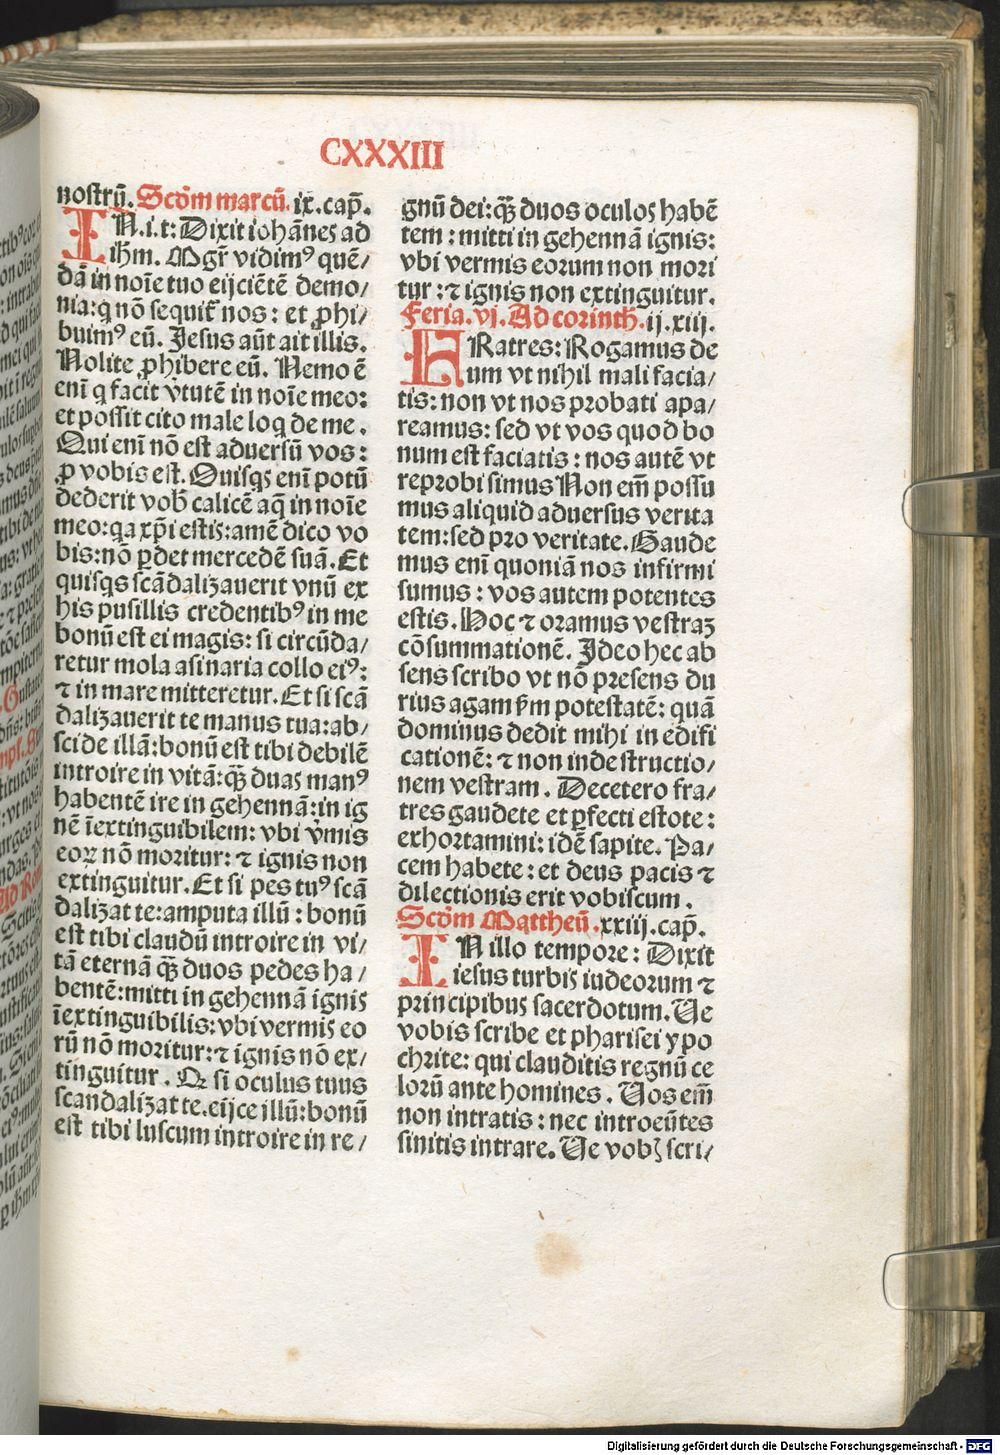 CXXXIII
nostrū. Scd̄m marcū. ix. cap̄.
IN.i.t: Dixit iohānes ad
ih̄m. Mgr̄ vidimꝰ quē/
dā in noīe tuo eijciētē demo/
nia: q nō sequit᷑ nos: et ꝓhi/
buimꝰ eū. Jesus aūt ait illis.
Nolite ꝓhibere eū. Nemo ē
enī q facit v̓tutē in noīe meo:
et possit cito male loq de me.
Qui enī nō est aduersū vos:
ꝓ vobis est. Quisqs enī potū
dederit vob̄ calicē aq̄ in noīe
meo: qa xp̄i estis: amē dico vo
bis: nō ꝑdet mercedē suā. Et
quisqs scādalizauerit vnū ex
his pusillis credentibꝰ in me
bonū est ei magis: si circūda/
retur mola asinaria collo eiꝰ:
⁊ in mare mitteretur. Et si scā
dalizauerit te manus tua: ab/
scide illā: bonū est tibi debilē
introire in vitā: q̄ꝫ duas manꝰ
habentē ire in gehennā: in ig
nē īextinguibilem: vbi v̓mis
eoꝝ nō moritur: ⁊ ignis non
extinguitur. Et si pes tuꝰ scā
dalizat te: amputa illū: bonū
est tibi claudū introire in vi/
tā eternā q̄ꝫ duos pedes ha/
bentē: mitti in gehennā ignis
īextinguibilis: vbi vermis eo
rū nō moritur: ⁊ ignis nō ex/
tinguitur. Qꝫ si oculus tuus
scandalizat te. eijce illū: bonū
est tibi luscum introire in re/
gnū dei: q̄ꝫ duos oculos habē
tem: mitti in gehennā ignis:
vbi vermis eorum non mori
tur: ⁊ ignis non extinguitur.
Feria. vj. Ad corinth̄. ij. xiij.
FRatres: Rogamus de
um vt nihil mali facia/
tis: non vt nos probati apa/
reamus: sed vt vos quod bo
num est faciatis: nos autē vt
reprobi simus Non em̄ possu
mus aliquid aduersus verita
tem: sed pro veritate. Gaude
mus enī quoniā nos infirmi
sumus: vos autem potentes
estis. Hoc ⁊ oramus vestraꝫ
cōsummationē. Jdeo hec ab
sens scribo vt nō presens du
rius agam ẜm potestatē: quā
dominus dedit mihi in edifi
cationē: ⁊ non in destructio/
nem vestram. Decetero fra/
tres gaudete et ꝑfecti estote:
exhortamini: idē sapite. Pa/
cem habete: et deus pacis ⁊
dilectionis erit vobiscum.
Scd̄m Mattheū. xxiij. cap̄.
IN illo tempore: Dixit
iesus turbis iudeorum ⁊
principibus sacerdotum. Ue
vobis scribe et pharisei ypo
chrite: qui clauditis regnū ce
lorū ante homines. Uos em̄
non intratis: nec introeūtes
sinitis intrare. Ue vobꝫ scri/
Digitalisierung gefördert durch die Deutsche Forschungsgemeinschaft - DFG